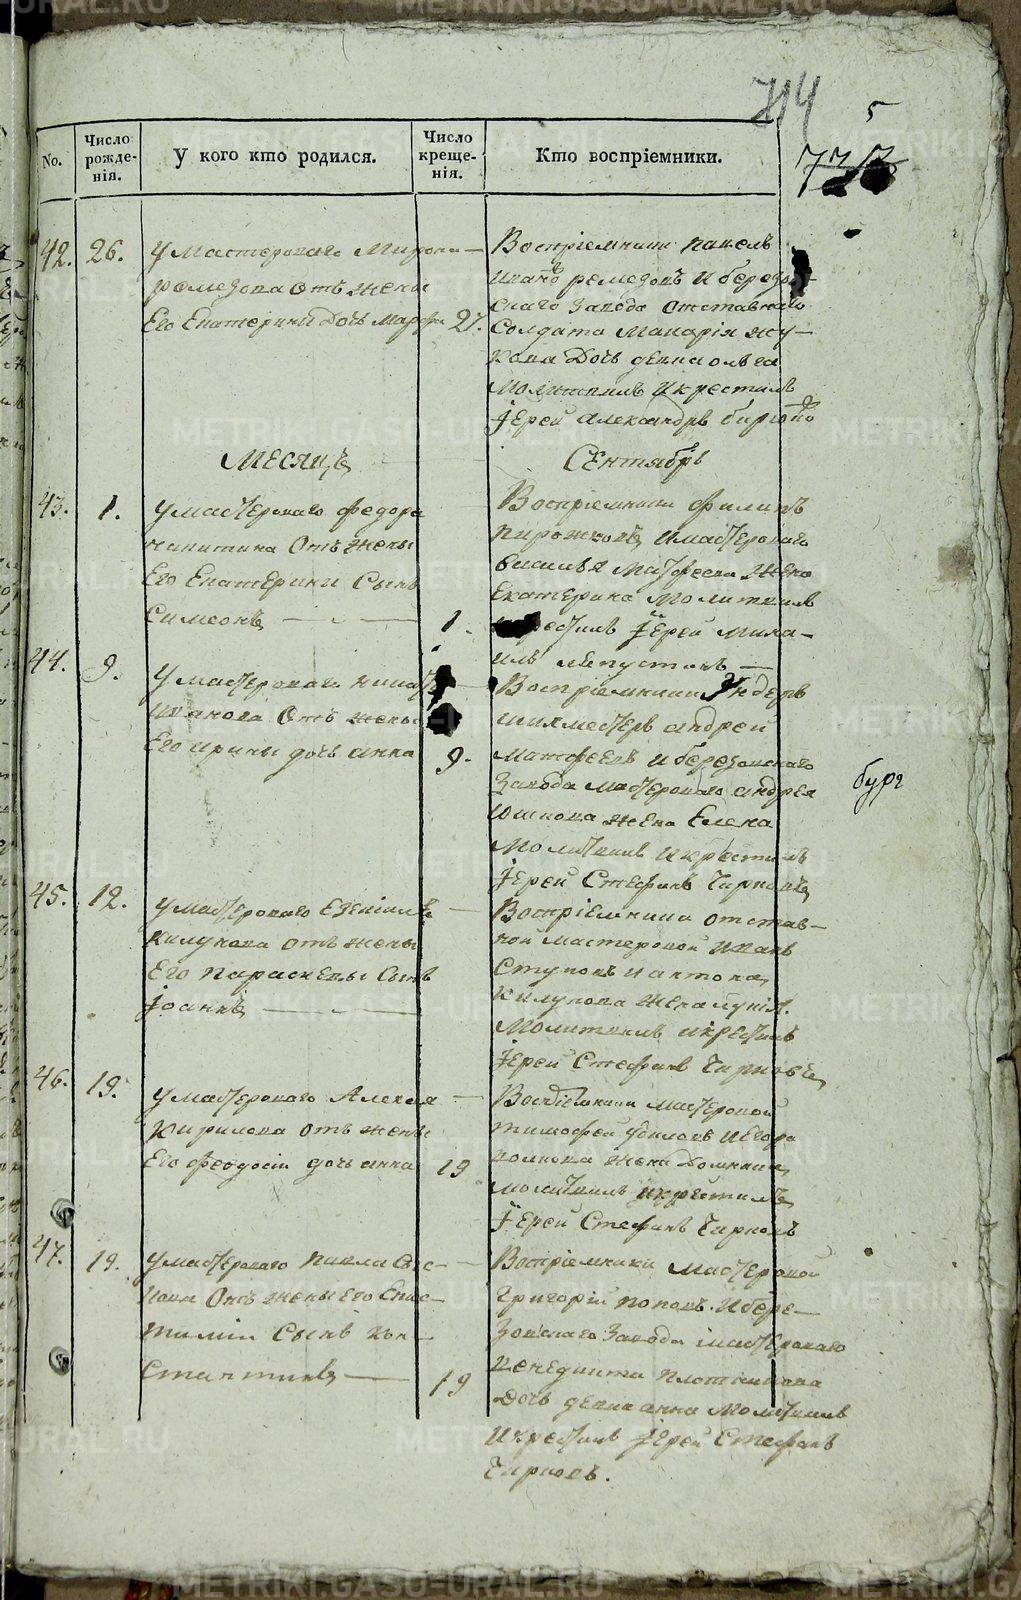 714
5
No.
Число рожде-нія.
У кого кто родился.
Число креще-нія.
Кто воспріемники.
42.
26.
У Мастероваго Мирона
ромедова отъ жены
Его Екатерины Дочь Марфа
27.
Воспріемники павелъ
ивановъ ремедовъ и березов-
скаго завода отставнаго
Солдата Макарія жу-
кова Дочь девка ольга
Молитвилъ и крестилъ
Іерей александръ бирюковъ
Месяцъ
Сентябрь
43.
1.
У мастероваго федора
никитина отъ жены
Его Екатерины Сынъ
Симеонъ
1.
Воспріемники филипъ
пирожковъ и мастероваго
василья матфеева жена
Екатерина Молитвилъ
и крестилъ Іерей миха-
илъ
44.
9.
У мастероваго
иванова отъ жены
Его ирины дочь анна
9.
Воспріемники Ундеръ
шихмейстеръ андрей
матфеевъ и березовскаго
завода мастероваго андрея
юшкова жена Елена
Молитвилъ и крестилъ
Іерей Стефанъ Чирковъ
бург
45.
12.
У мастероваго
килукова отъ жены
Его параскевы Сынъ
Іоаннъ
Воспріемники отстав-
ной мастеровой иванъ
Ступовъ и антона
килукова жена
Молитвилъ и крестилъ
Іерей Стефанъ Чирковъ
46.
19.
У мастероваго Алексея
кирилова отъ жены
Его феодосіи дочь анна
19
Воспріемники мастеровой
тимофей и Егора
жена Домника
молитвилъ и крестилъ
Іерей Стефанъ Чирковъ
47.
19.
У мастероваго павла Сыс-
кова отъ жены Его Епис-
тиміи Сынъ Кон-
стантинъ
19
Воспріемники мастеровой
григорій поповъ и бере-
зовскаго завода мастероваго
венедикта плотникова
Дочь девка анна Молитвилъ
и крестилъ Іерей Стефанъ
Чирковъ.
METRIKI.GASU-URAL.RU